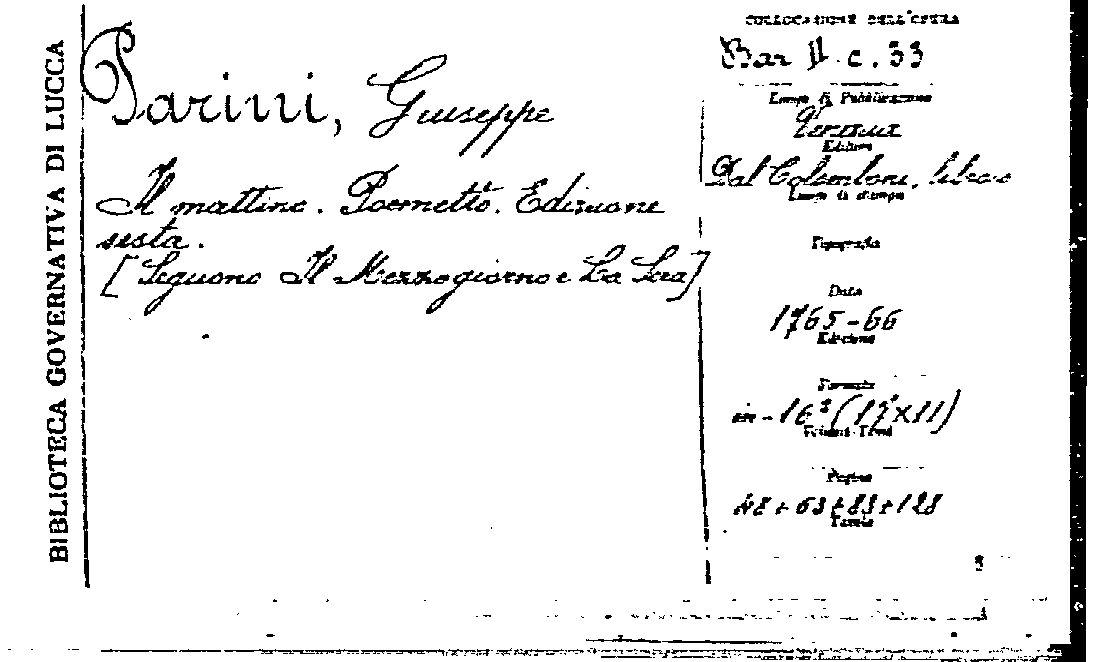 BIBLIOTECA GOVERNATIVA DI LUCCA
Parini, Giuseppe
Il mattino. Poemetto. Edizione
sesta.
[Seguono Il Mezzogiorno e La Sera]
COLLOCAZIONE DELL'OPERA
Bar II c. 33
Luogo di Pubblicazione
Editore
Dal Colomboni, libraio
Luogo di stampa
Tipografia
Data
1765-66
Edizione
Formato
in-16° (17×11)
Volumi-Tomi
Pagine
48+63+83+128
Tavole